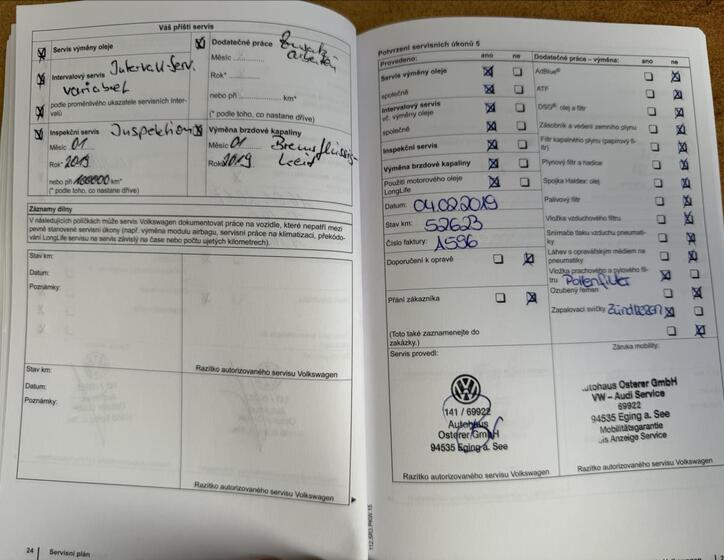 Váš příští servis
Servis výměny oleje
Dodatečné práce Zusatz
arbeiten
Měsíc ..............
Intervalový servis Intervall-Serv.
variabel
Rok* ..............
podle proměnlivého ukazatele servisních inter-
valů
nebo při .............. km*
(* podle toho, co nastane dříve)
Inspekční servis Inspektion
Měsíc 01
Rok* 2019
nebo při 100000 km*
(* podle toho, co nastane dříve)
Výměna brzdové kapaliny
Měsíc 01 Bremsflüssig-
Rok 2019
Záznamy dílny
V následujících políčkách může servis Volkswagen dokumentovat práce na vozidle, které nepatří mezi
pevně stanovené servisní úkony (např. výměna modulu airbagu, servisní práce na klimatizaci, překódo-
vání LongLife servisu na servis závislý na čase nebo počtu ujetých kilometrech).
Stav km:
Datum:
Poznámky:
Razítko autorizovaného servisu Volkswagen
Stav km:
Datum:
Poznámky:
Razítko autorizovaného servisu Volkswagen
24 Servisní plán
Potvrzení servisních úkonů 5
Provedeno: ano ne
Servis výměny oleje
společně
Intervalový servis
vč. výměny oleje
společně
Inspekční servis
Výměna brzdové kapaliny
Použití motorového oleje
LongLife
Datum: 04.02.2019
Stav km: 52623
Číslo faktury: 1596
Doporučení k opravě
Přání zákazníka
(Toto také zaznamenejte do
zakázky.)
Servis provedl:
141 / 69922
Autohaus
Osterer GmbH
94535 Eging a. See
Razítko autorizovaného servisu Volkswagen
Dodatečné práce – výměna: ano ne
AdBlue®
ATF
DSG® olej a filtr
Zásobník a vedení zemního plynu
Filtr kapalného plynu (papírový fil-
tr)
Plynový filtr a hadice
Spojka Haldex: olej
Palivový filtr
Vložka vzduchového filtru
Snímače tlaku vzduchu pneumati-
ky
Láhev s opravářským médiem na
pneumatiky
Vložka prachového a pylového fil-
tru Pollenfilter
Ozubený řemen
Zapalovací svíčky Zündkerzen
Záruka mobility:
utohaus Osterer GmbH
VW – Audi Service
69922
94535 Eging a. See
Mobilitätsgarantie
bis Anzeige Service
Razítko autorizovaného servisu Volkswagen